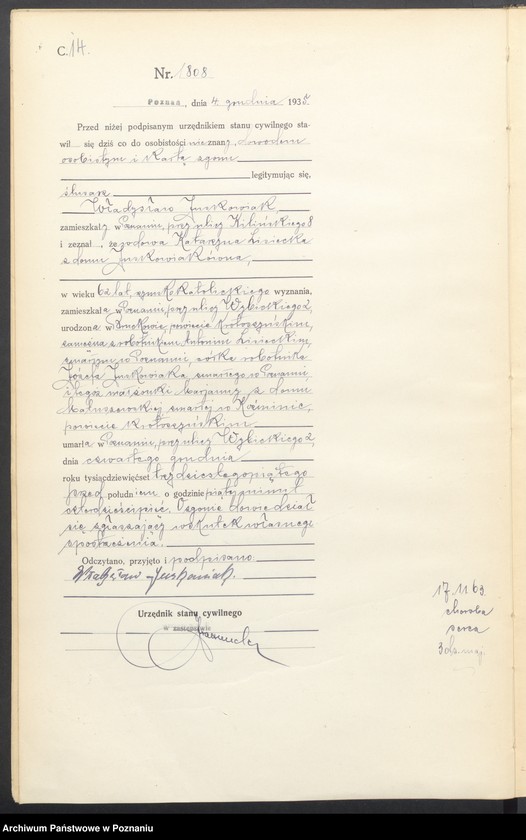 C. 14.
Nr. 1808
Poznań, dnia 4 grudnia 1935.
Przed niżej podpisanym urzędnikiem stanu cywilnego sta-
wił się dziś co do osobistości nieznany, dowodem
osobistym i kartą zgonu
legitymując się,
ślusarz
Władysław Jurkowiak
zamieszkały w Poznaniu, przy ulicy Kilińskiego 8
i zeznał, że wdowa Katarzyna Lisiecka
z domu Jurkowiakówna,
w wieku 62 lat, rzymskokatolickiego wyznania,
zamieszkała w Poznaniu, przy ulicy Wybickiego 2,
urodzona w powiecie Krotoszyńskim,
zamężna z robotnikiem Antonim Lisieckim,
zmarłym w Poznaniu, córka robotnika
Józefa Jurkowiaka zmarłego w Poznaniu,
i tegoż małżonki Marjanny z domu
zmarłej w Koźmińcu,
powiecie Krotoszyńskim
umarła w Poznaniu, przy ulicy Wybickiego 2,
dnia czwartego grudnia
roku tysiącdziewięćset trzydziestegopiątego
przed południem o godzinie piątej minut
czterdzieścipięć. O zgonie dowiedział
się zgłaszający wskutek własnego
spostrzeżenia.
Odczytano, przyjęto i podpisano
Władysław Jurkowiak.
Urzędnik stanu cywilnego
w zastępstwie
17.11 63.
choroba
serca
Archiwum Państwowe w Poznaniu